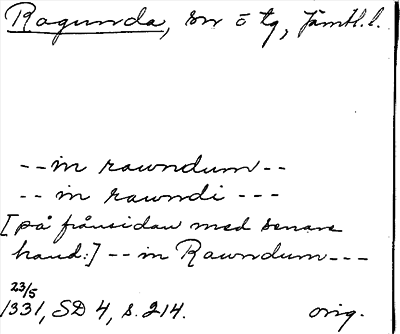 Ragunda, sn o tg, Jämtl. l.
-- in rawndum --
-- in rawndi ---
[på frånsidan med senare
hand:] -- in Rawndum ---
23/5
1331, SD 4, s. 214. orig.